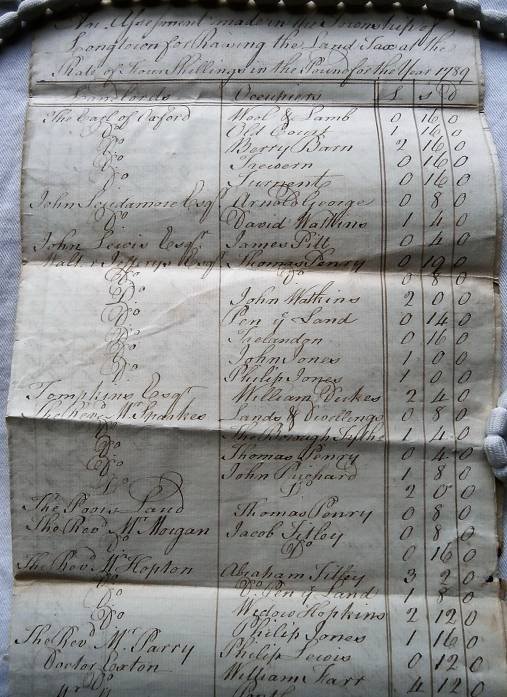 An Assessment made in the Township of
Longtown for having the Land Tax at the
Rate of Four Shillings in the Pound for the Year 1789
Landlords Occupiers £ s d
The Earl of Oxford Wool & Lamb 0 16 0
Do Old Court 1 16 0
Do Berry Barn 2 16 0
Do Trewern 0 16 0
Do Turnent 0 16 0
John Scudamore Esqr Arnold George 0 8 0
Do David Watkins 1 4 0
John Lewis Esqr James Pitt 0 4 0
Walter Jefferys Esqr Thomas Penry 0 19 0
Do Do 0 8 0
Do John Watkins 2 0 0
Do Pen y Land 0 14 0
Do Trelandon 0 16 0
Do John Jones 1 0 0
Do Philip Jones 1 0 0
Tompkins Esqr William Dukes 2 4 0
The Revd Mr Sparkes Lands & Dwellings 0 8 0
Do The Borough Tythe 1 4 0
Do Thomas Penry 0 4 0
Do John Prichard 1 8 0
Do Do 2 0 0
The Poors Land Thomas Penry 0 8 0
The Revd Mr Morgan Jacob Tilley 0 8 0
Do Do 0 16 0
The Revd Mr Hopton Abraham Tilley 3 2 0
Do Do Pen y Land 1 8 0
Do Widow Hopkins 2 12 0
Do Philip Jones 1 16 0
The Revd Mr Parry Philip Lewis 0 12 0
Doctor Exton William Farr 4 12 0
Do